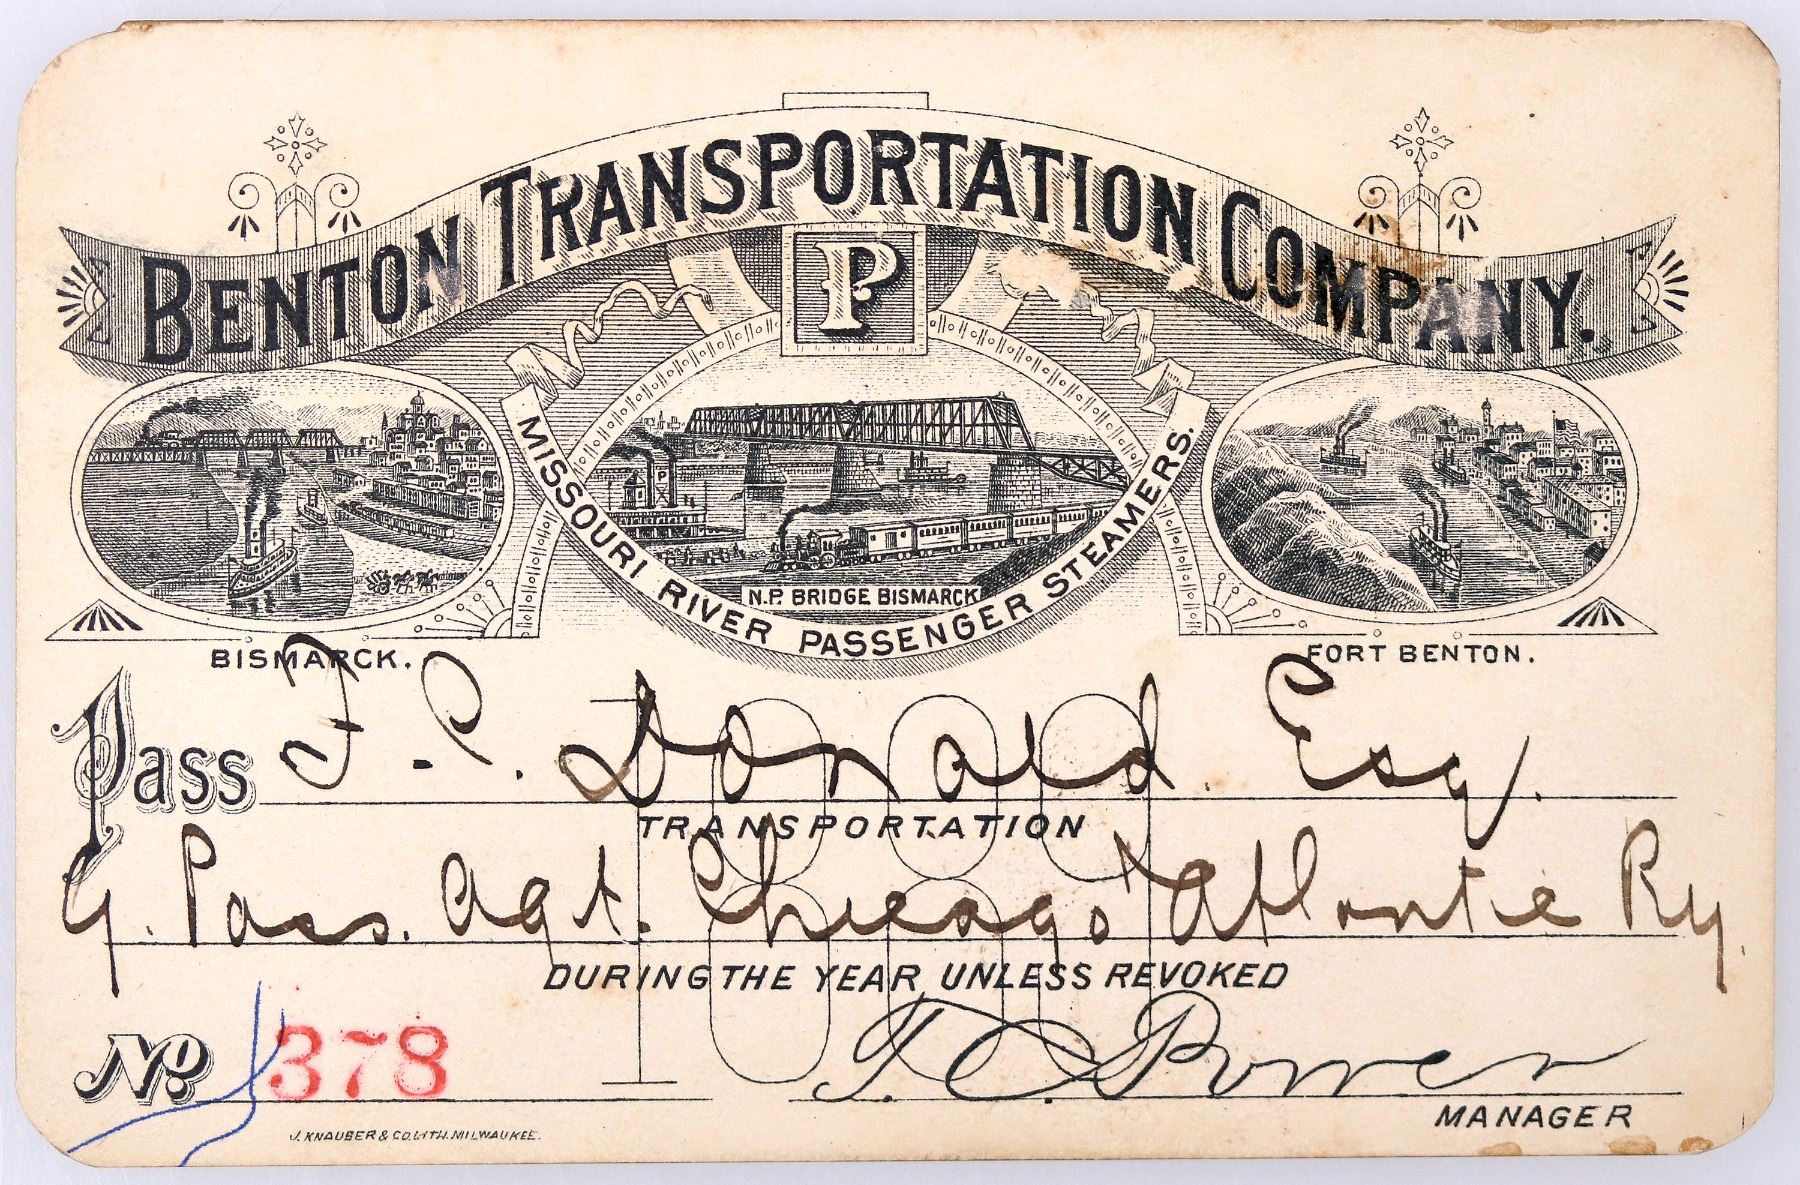 BENTON TRANSPORTATION COMPANY.
P
MISSOURI RIVER PASSENGER STEAMERS.
N.P. BRIDGE BISMARCK
BISMARCK.
FORT BENTON.
1888
Pass F. P. Donald. Esq.
TRANSPORTATION
G. Pass. Agt. Chicago & Atlantic Ry.
DURING THE YEAR UNLESS REVOKED
No. 378
T. C. Power
MANAGER
J. KNAUBER & CO. LITH. MILWAUKEE.